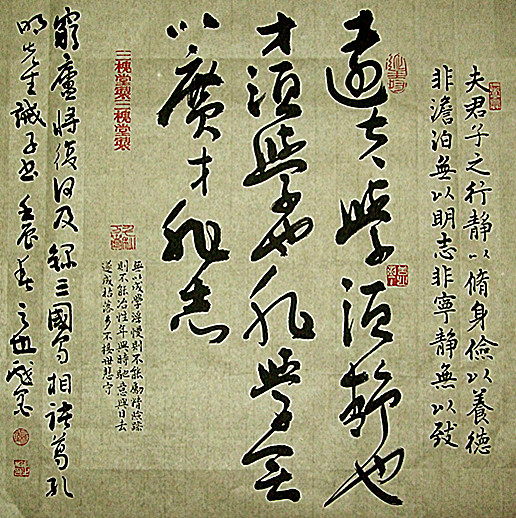 夫君子之行靜以脩身儉以養德
非澹泊無以明志非寧靜無以致
遠夫學須靜也
才須學也非學無
以廣才非志
三槐堂製三槐堂製
無以成學淫慢則不能勵精險躁
則不能治性年與時馳意與日去
遂成枯落多不接世悲守
窮廬將復何及錄三國蜀相諸葛孔
明先生誡子書壬辰春